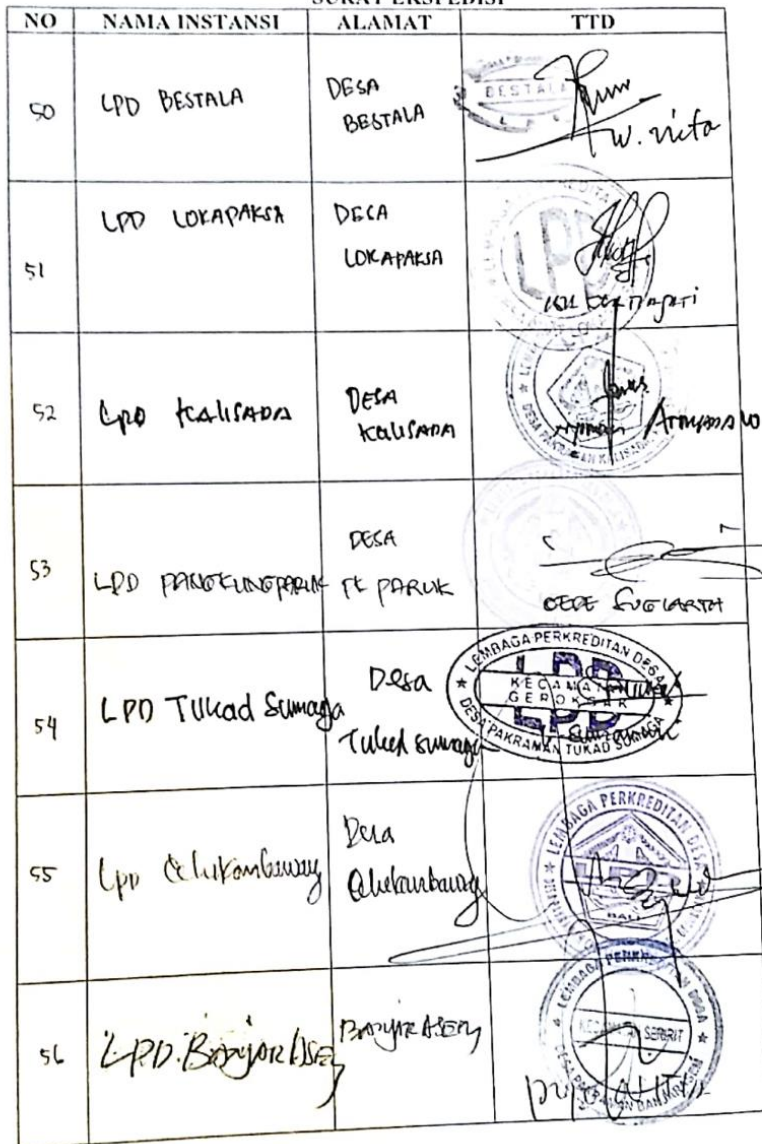 SURAT EKSPEDISI
NO NAMA INSTANSI ALAMAT TTD
50 LPD BESTALA DESA BESTALA
BESTALA
W. nita
51 LPD LOKAPAKSA DESA LOKAPAKSA
LPD
52 LPD KALISADA DESA KALISADA
Nyoman
53 LPD PANGKUNGPARUK DESA PK PARUK
GEDE SUGIARTA
54 LPD Tukad Sumaga Desa Tukad Sumaga
LEMBAGA PERKREDITAN DESA
LPD
KECAMATAN
GEROKGAK
DESA PAKRAMAN TUKAD SUMAGA
55 LPD Celukanbawang Desa Celukanbawang
LEMBAGA PERKREDITAN DESA
BALI
56 LPD. Banjar Asem Banjar Asem
LEMBAGA PERKREDITAN DESA
KECAMATAN SERIRIT
DESA PAKRAMAN BANJARASEM